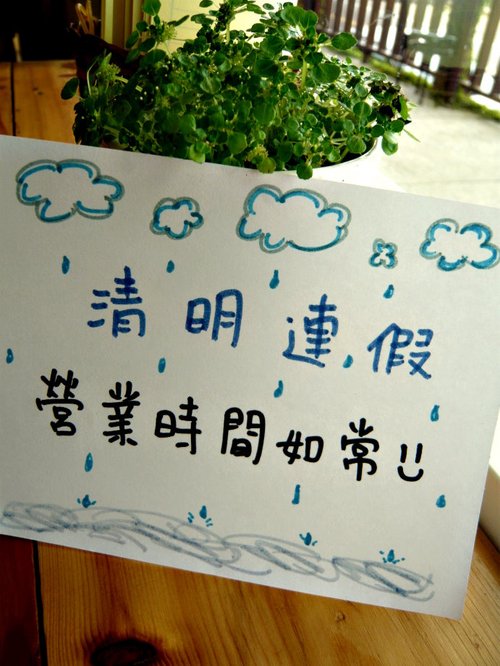 清明連假
營業時間如常!!